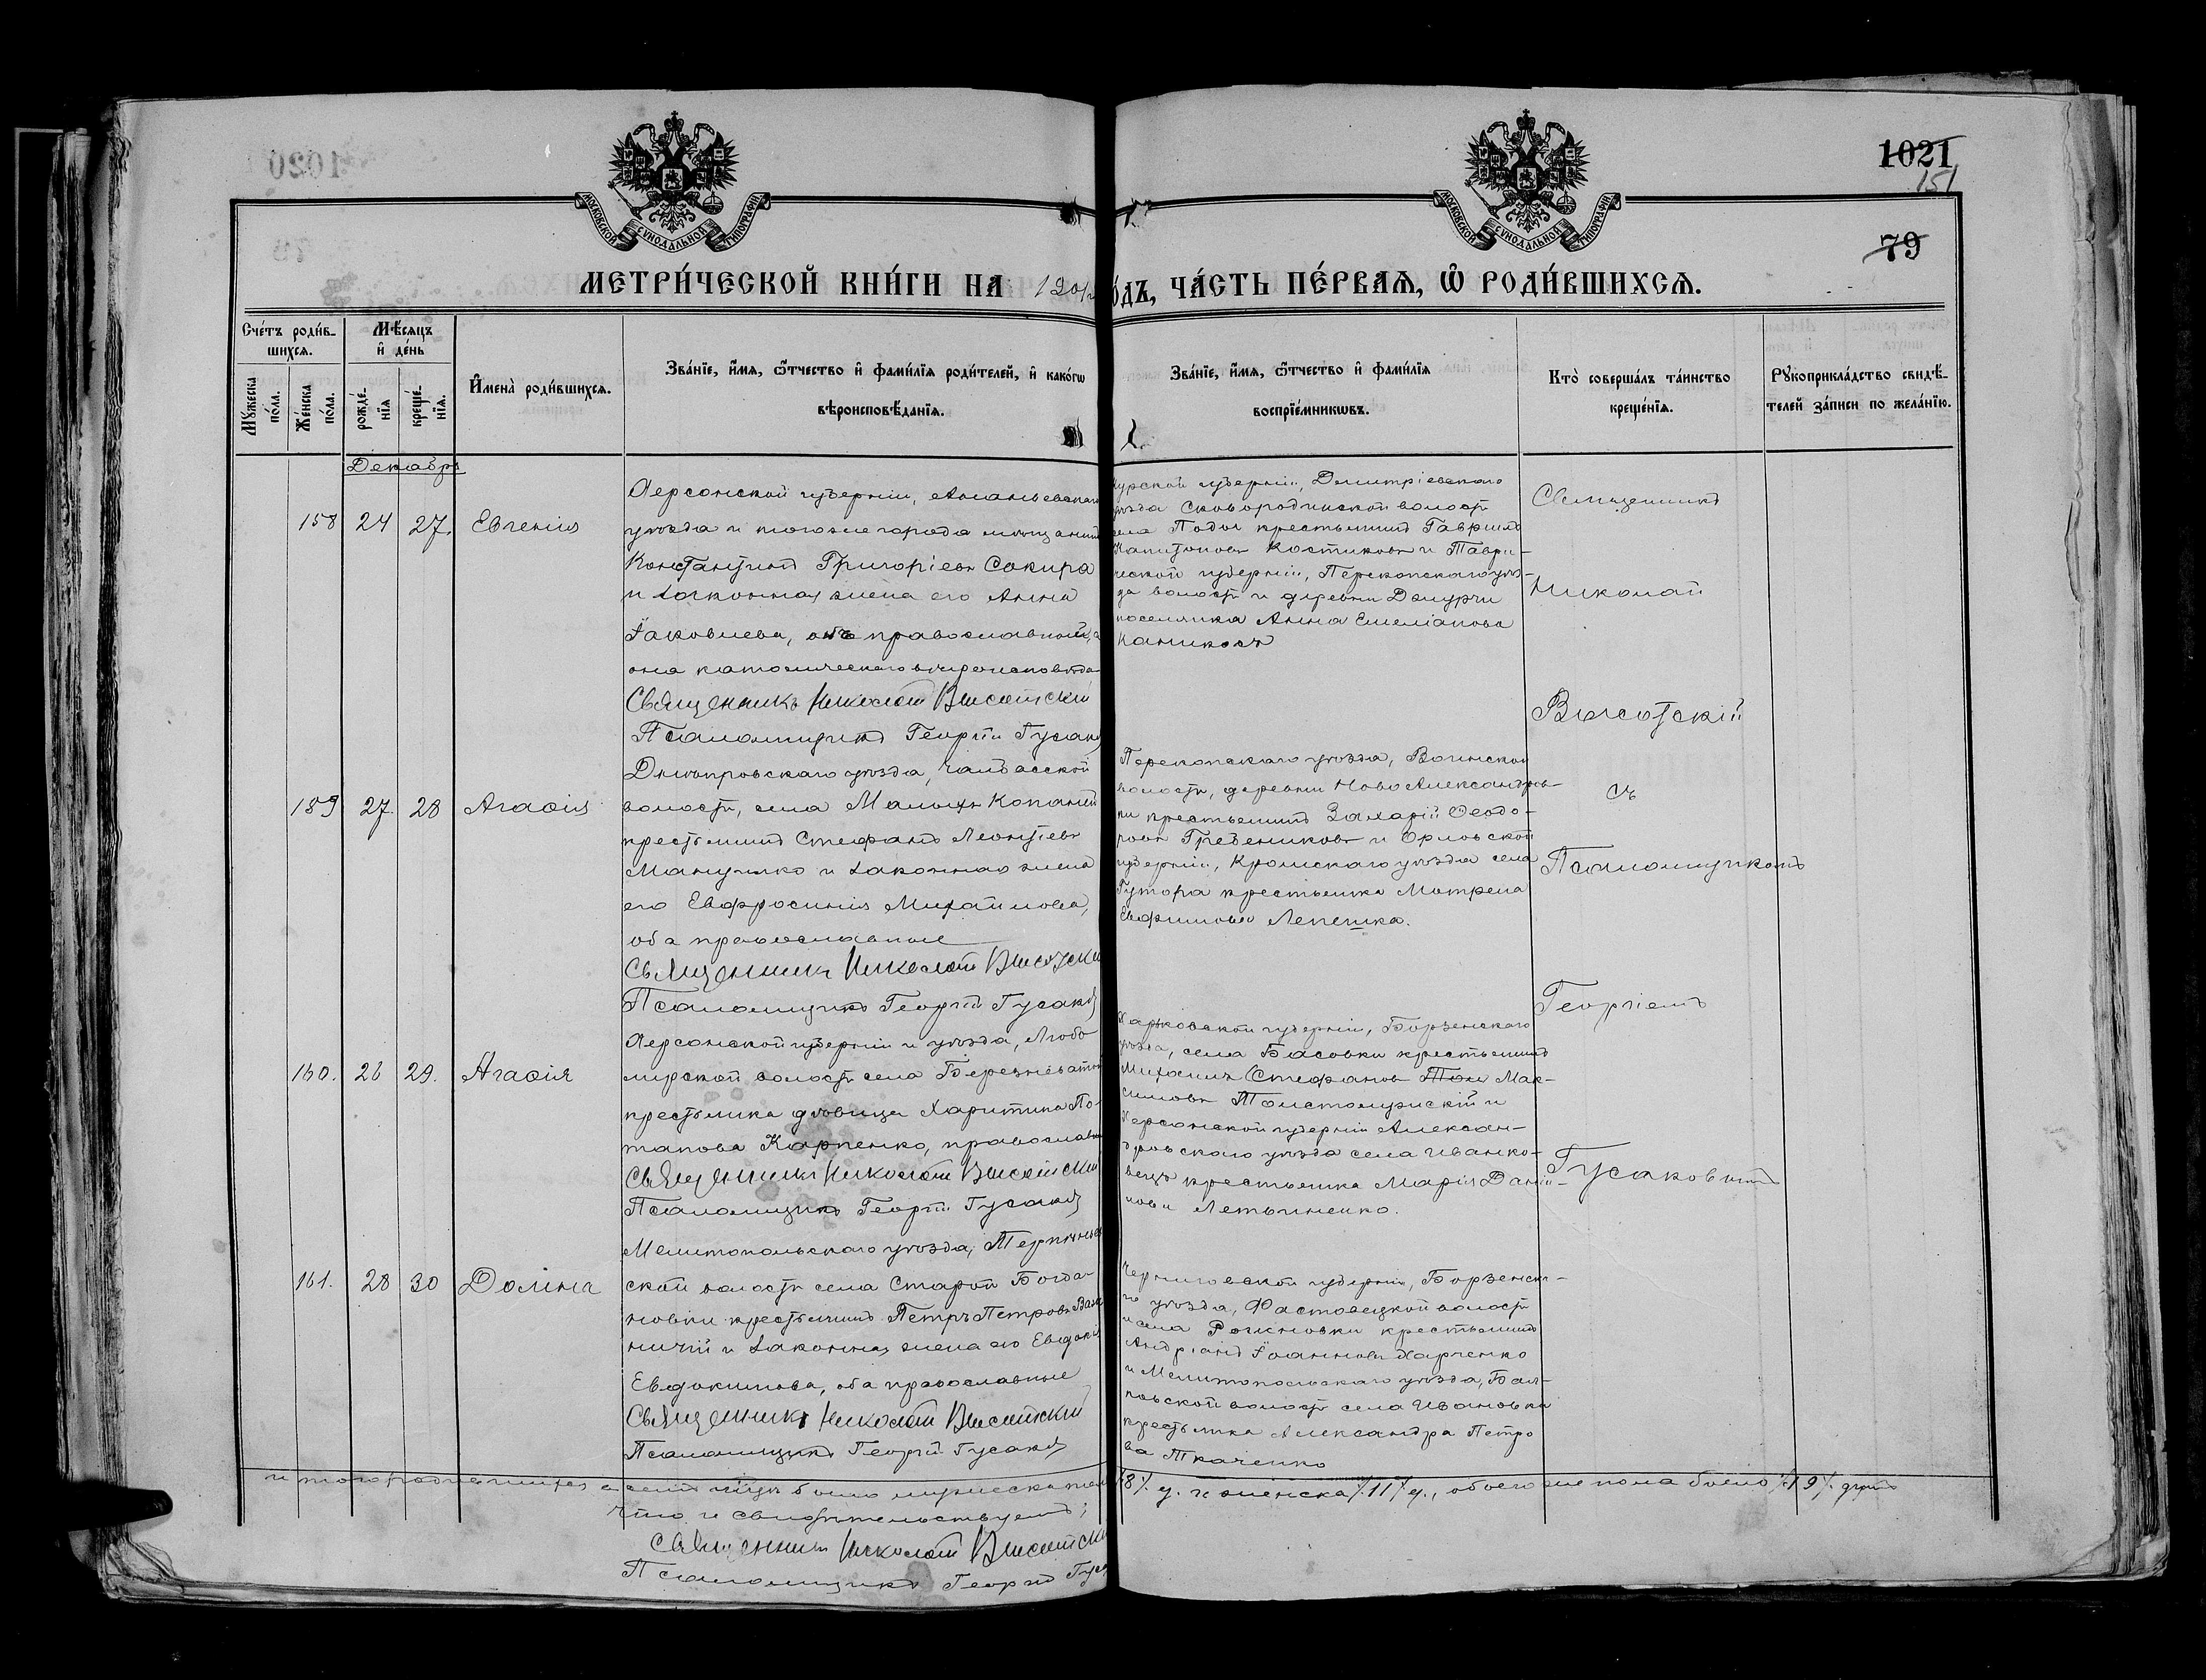 1020
1021
151
79
МОСКОВСКОЙ СѴНОДАЛЬНОЙ ТИПОГРАФІИ
МОСКОВСКОЙ СѴНОДАЛЬНОЙ ТИПОГРАФІИ
МЕТРИ́ЧЕСКОЙ КНИ́ГИ НА
О́ДЪ, ЧА́СТЬ ПЕ́РВАѦ, Ѡ РОДИ́ВШИХСѦ.
Сче́тъ роди́в-
шихсѧ.
Мѣ́сяцъ
и де́нь
Мꙋ́жеска по́ла.
Же́нска по́ла.
рожде́нїѧ
креще́нїѧ.
И҆мена̀ роди́вшихсѧ.
Зва́нїе, и҆́мѧ, ѻ҆́тчество и҆ фами́лїѧ роди́телей, и҆ како́гѡ
вѣроисповѣ́данїѧ.
Зва́нїе, и҆́мѧ, ѻ҆́тчество и҆ фами́лїѧ
воспрїе́мникѡвъ.
Кто̀ соверша́лъ та́инство
креще́нїѧ.
Рꙋкоприкла́дство свидѣ́-
телей за́писи по жела́нїю.
Декабрь
158 24 27. Евгенія
Херсонской губерніи, Ананьевскаго
уѣзда и того же города мѣщанинъ
Константинъ Григоріевъ Сокира
и законная жена его Анна
Іаковлева, онъ православной, а
она католическаго вѣроисповѣда-
Священникъ Николай Высотскій
Псаломщикъ Георгій Гусаков
Курской губерніи, Димитріевскаго
уѣзда Сковородинской волости
села Поды крестьянинъ Гавриилъ
Капитоновъ Костиковъ и Таври-
ческой губерніи, Перекопскаго уѣз-
да волости и деревни Джурчи
поселянка Анна Емеліанова
Священникъ
Николай
Высотскій
съ
Псаломщикомъ
Георгіемъ
Гусаковымъ
159 27. 28 Агафія
Днѣпровскаго уѣзда, Чалбасской
волости, села Малыхъ Копаней
крестьянинъ Стефанъ Леонтіевъ
Мануилко и законная жена
его Евфросинія Михайлова,
оба православные
Священникъ Николай Высотскій
Псаломщикъ Георгій Гусаков
Перекопскаго уѣзда, Воинской
волости, деревни Ново Александров-
ки крестьянинъ Захарій Ѳеодо-
ровъ Гребениковъ и Орловской
губерніи, Кромскаго уѣзда села
Гутора крестьянка Матрена
Евфимова Лепешка.
160. 26 29. Агафія
Херсонской губерніи и уѣзда, Любо
мирской волости села Березневатой
крестьянка дѣвица Харитина По-
тапова Карпенко, православн
Священникъ Николай Высотскій
Псаломщикъ Георгій Гусаков
Харьковской губерніи, Борзенскаго
уѣзда, села Басовки крестьянинъ
Михаилъ Стефановъ Мак-
симовъ и
Херсонской губерніи Алексан-
дровскаго уѣзда села Иванко-
вецъ крестьянка Марія Дании-
лова
161. 28 30 Домна
Мелитопольскаго уѣзда, Терпѣньев
ской волости села Старой Богда-
новки крестьянинъ Петръ Петровъ
и законная жена его Евдокія
Евдокимова, оба православные
Священникъ Николай Высотскій
Псаломщикъ Георгій Гусаков
Черниговской губерніи, Борзенска-
го уѣзда, Фастовецкой волости
и села Рожновки крестьянинъ
Андріанъ Іоанновъ Харченко
и Мелитопольскаго уѣзда, Бал-
ковской волости села Ивановки
крестьянка Александра Петро
ва Ткаченко
и того родившихся въ семъ м-цѣ было мужеска пола /8/. д. и женска /.11/ д., обоего же пола было /.19/. душъ
что и свидѣтельствуемъ;
Священникъ Николай Высотскій
Псаломщикъ Георгій Гусак